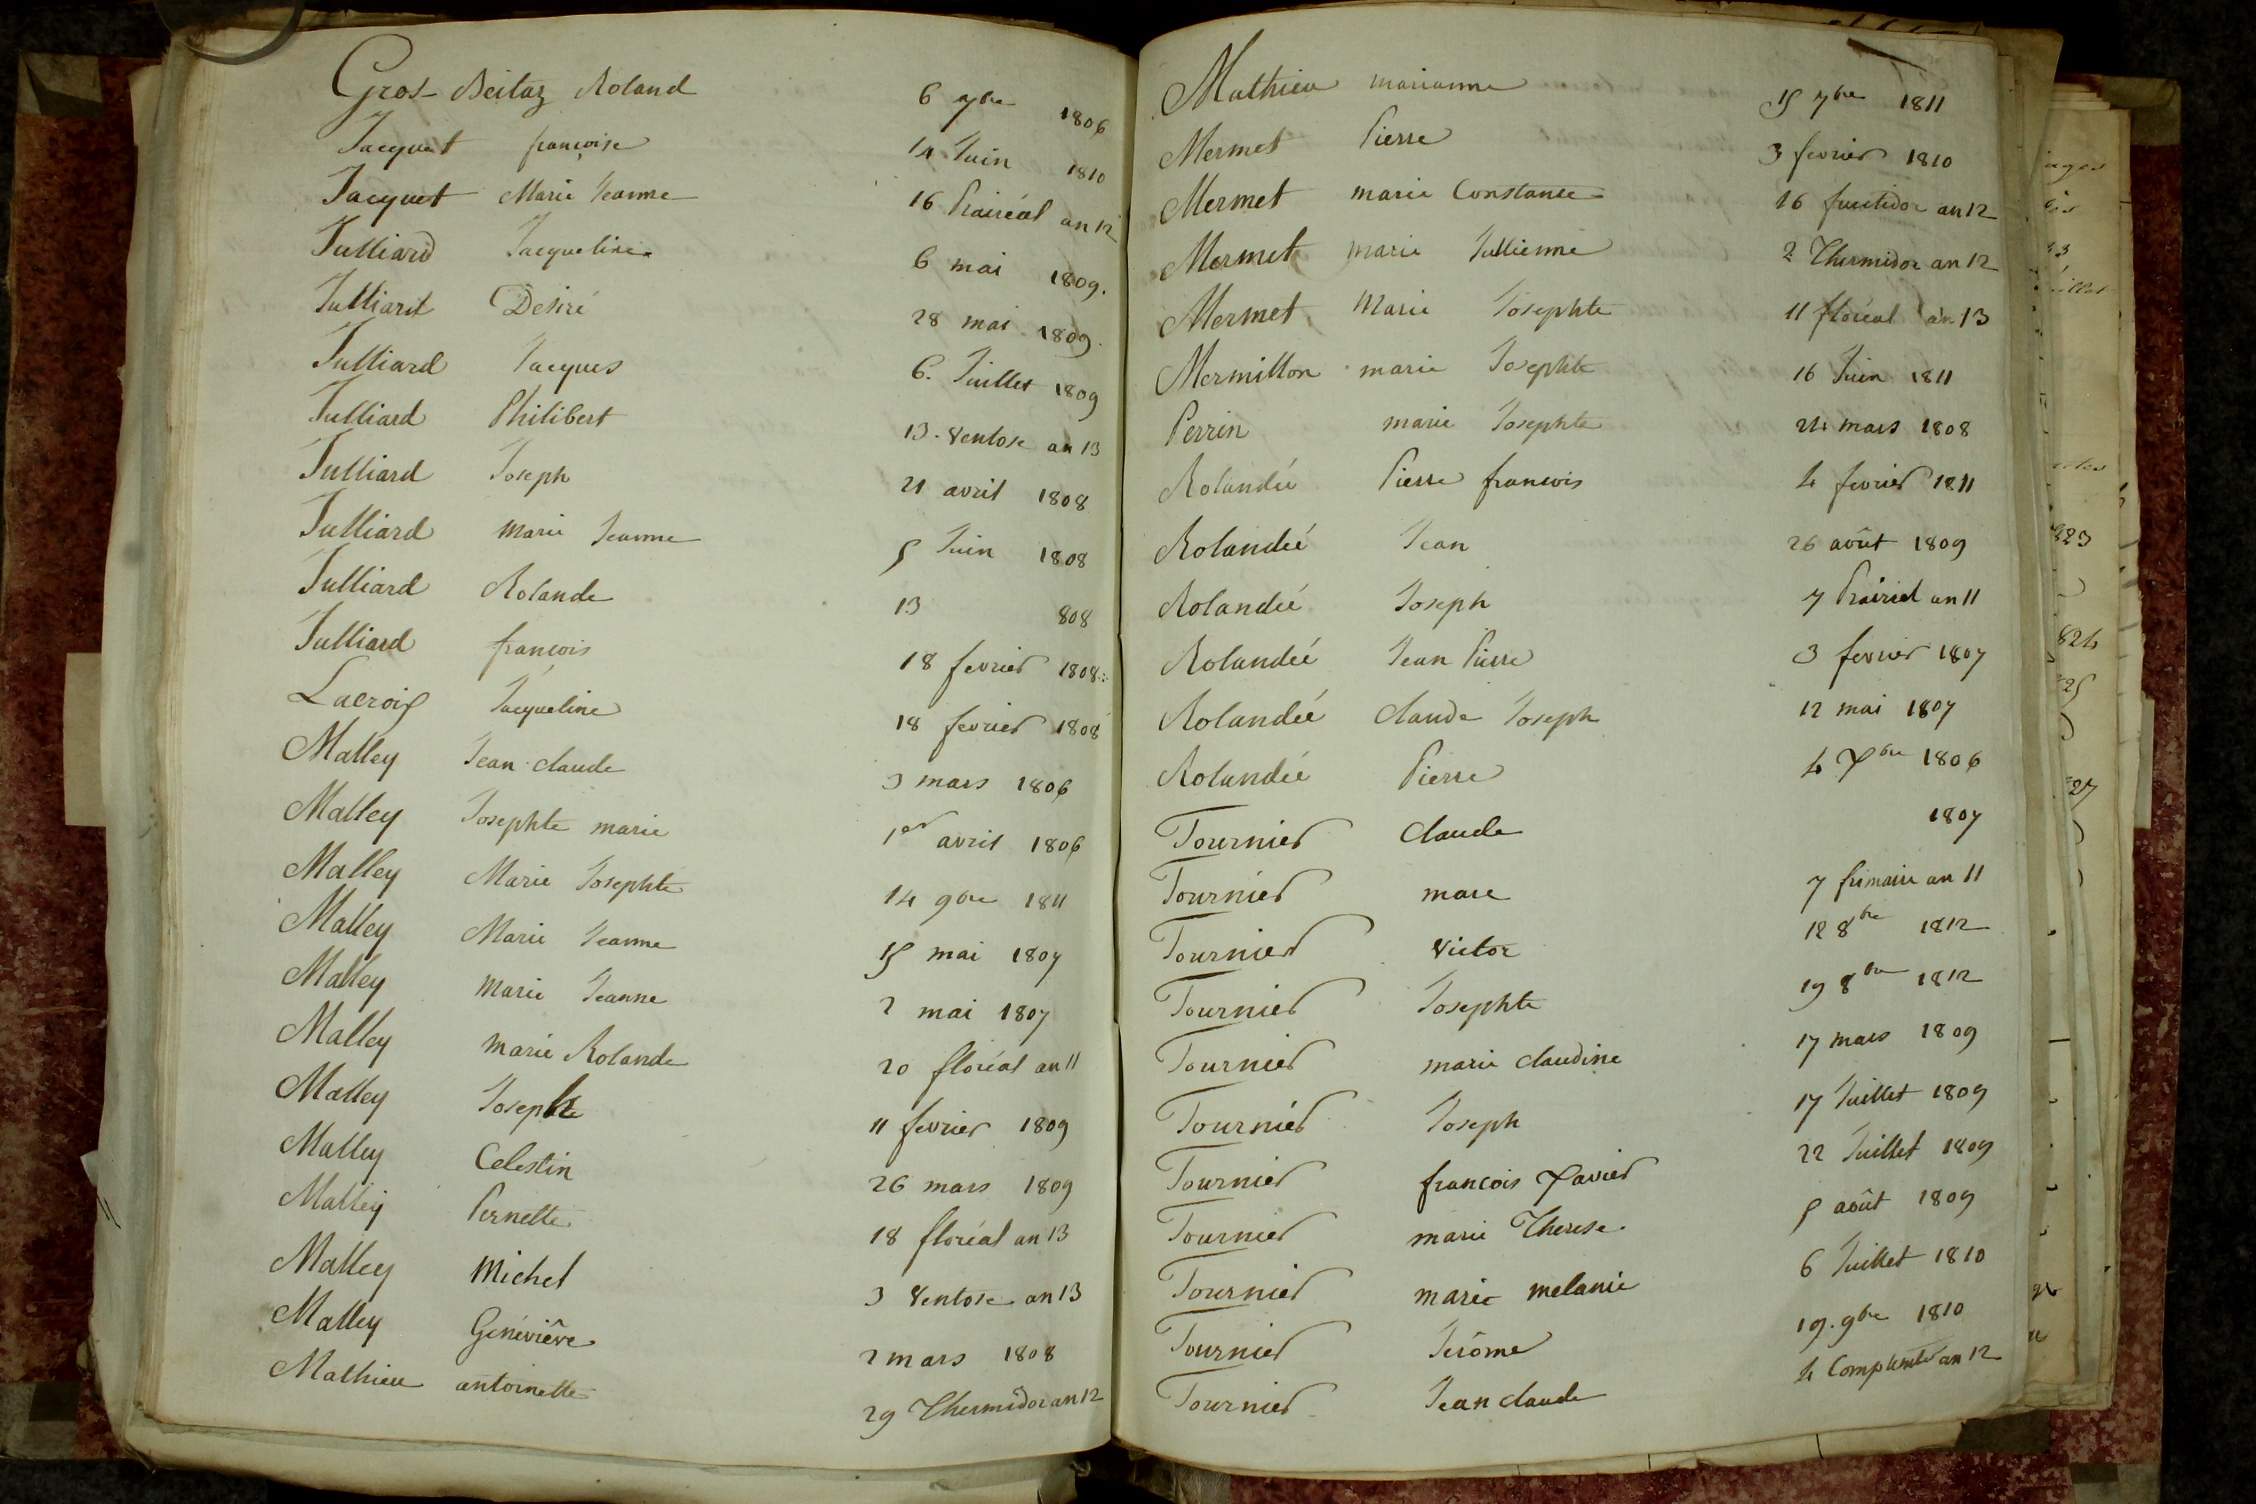 Gros-Beitaz Roland 6 7bre 1806
Jacquet françoise 14 Juin 1810
Jacquet Marie Jeanne 16 Prairéal an 12
Julliard Jacqueline 6 mai 1809.
Julliard Desiré 28 mai 1809.
Julliard Jacques 6. Juillet 1809
Julliard Philibert 13. Ventose an 13
Julliard Joseph 21 avril 1808
Julliard Marie Jeanne 5 Juin 1808
Julliard Rolande 13 808
Julliard françois 18 fevrier 1808
Lacroix Jacqueline 18 fevrier 1808
Malley Jean claude 3 mars 1806
Malley Josephte marie 1er avril 1806
Malley Marie Josephte 14 9bre 1811
Malley Marie Jeanne 15 mai 1807
Malley Marie Jeanne 2 mai 1807
Malley marie Rolande 20 floréal an 11
Malley Joseph 11 fevrier 1809
Malley Celestin 26 mars 1809
Malley Pernette 18 floréal an 13
Malley Michel 3 Ventose an 13
Malley Généviêve 2 mars 1808
Mathieu antoinette 29 Thermidor an 12
Mathieu marianne 15 7bre 1811
Mermet Pierre 3 fevrier 1810
Mermet marie Constance 16 fructidor an 12
Mermet marie Jullienne 2 Thermidor an 12
Mermet Marie Josephte 11 floréal an 13
Mermillon marie Josephte 16 Juin 1811
Perrin marie Josephte 24 mars 1808
Rolandéé Pierre francois 4 fevrier 1811
Rolandéé Jean 26 août 1809
Rolandéé Joseph 7 Prairial an 11
Rolandéé Jean Pierre 3 fevrier 1807
Rolandéé Claude Joseph 12 mai 1807
Rolandéé Pierre 4 Xbre 1806
Tournier Claude 1807
Tournier marc 7 frimaire an 11
Tournier Victor 12 8bre 1812
Tournier Josephte 19 8bre 1812
Tournier marie claudine 17 mars 1809
Tournier Joseph 17 Juillet 1809
Tournier francois Xavier 22 Juillet 1809
Tournier marie Therese 5 août 1809
Tournier marie melanie 6 Juillet 1810
Tournier Jerôme 19. 9bre 1810
Tournier Jean claude 4 Complemtre an 12